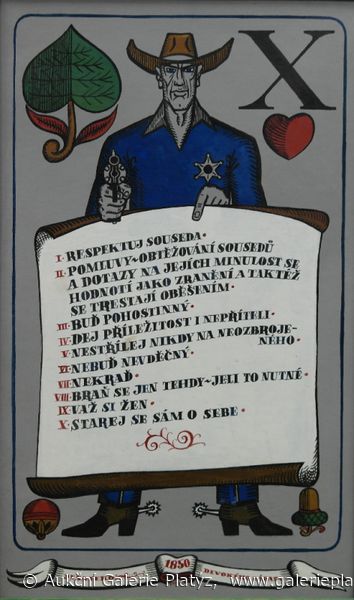 X
I· RESPEKTUJ SOUSEDA·
II· POMLUVY~OBTĚŽOVÁNÍ SOUSEDŮ
A DOTAZY NA JEJÍCH MINULOST SE
HODNOTÍ JAKO ZRANĚNÍ A TAKTÉŽ
SE TRESTAJÍ OBĚŠENÍM·
III· BUĎ POHOSTINNÝ·
IV· DEJ PŘÍLEŽITOST I NEPŘÍTELI·
V· NESTŘÍLEJ NIKDY NA NEOZBROJE-
NÉHO·
VI· NEBUĎ NEVDĚČNÝ·
VII· NEKRAĎ·
VIII· BRAŇ SE JEN TEHDY~JELI TO NUTNÉ·
IX· VAŽ SI ŽEN·
X· STAREJ SE SÁM O SEBE·
1850
© Aukční Galerie Platýz, www.galeriepla